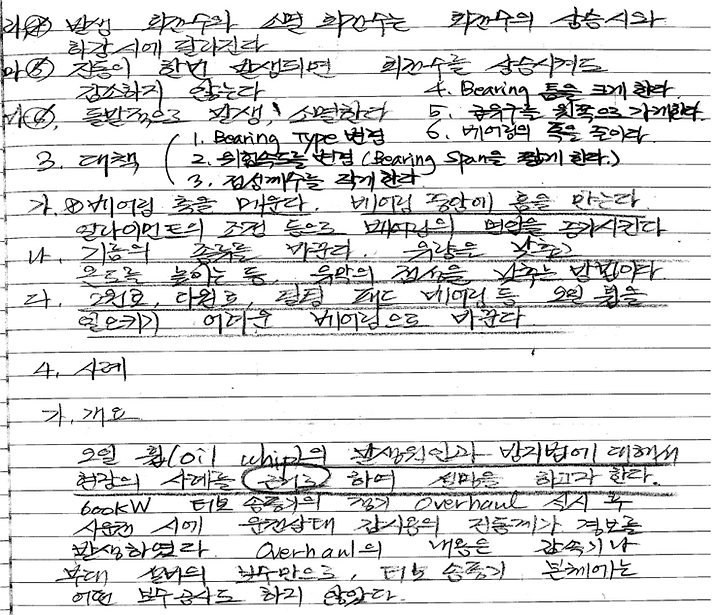 라④ 발생 회전수와 소멸 회전수는 회전수의 상승시와
하강시에 달라진다
마⑤ 진동이 한번 발생되면 회전수를 상승시켜도
감소하지 않는다 4. Bearing 틈을 크게 한다.
바⑥. 돌발적으로 발생, 소멸한다 5. 급유구를 위쪽으로 가게한다.
6. 베어링의 폭을 줄이다
3. 대책 1. Bearing Type 변경
2. 위험속도를 변경 (Bearing Span을 짧게 한다.)
3. 점성계수를 작게 한다
가. ⊗베어링 홈을 메운다. 베어링 중앙에 홈을 만든다
얼라이먼트의 조건 등으로 베어링의 면압을 증가시킨다
나. 기름의 종류를 바꾼다. 유량을 낮추고
온도를 높이는 등, 유막의 점성을 낮추는 방법이다
다. 2원호, 다원호, 틸팅 패드 베어링 등 오일 휩을
일으키기 어려운 베어링으로 바꾼다
4. 사례
가. 개요
오일 휩(oil whip)의 발생원인과 방지법에 대해서
현장의 사례를 근거로 하여 설명을 하고자 한다.
600KW 터보 송풍기의 정기 Overhaul 실시 후
시운전 시에 운전상태 감시용의 진동계가 경보를
발생하였다. Overhaul의 내용은 감속기나
부대 설비의 보수만으로, 터보 송풍기 본체에는
어떤 보수공사도 하지 않았다.